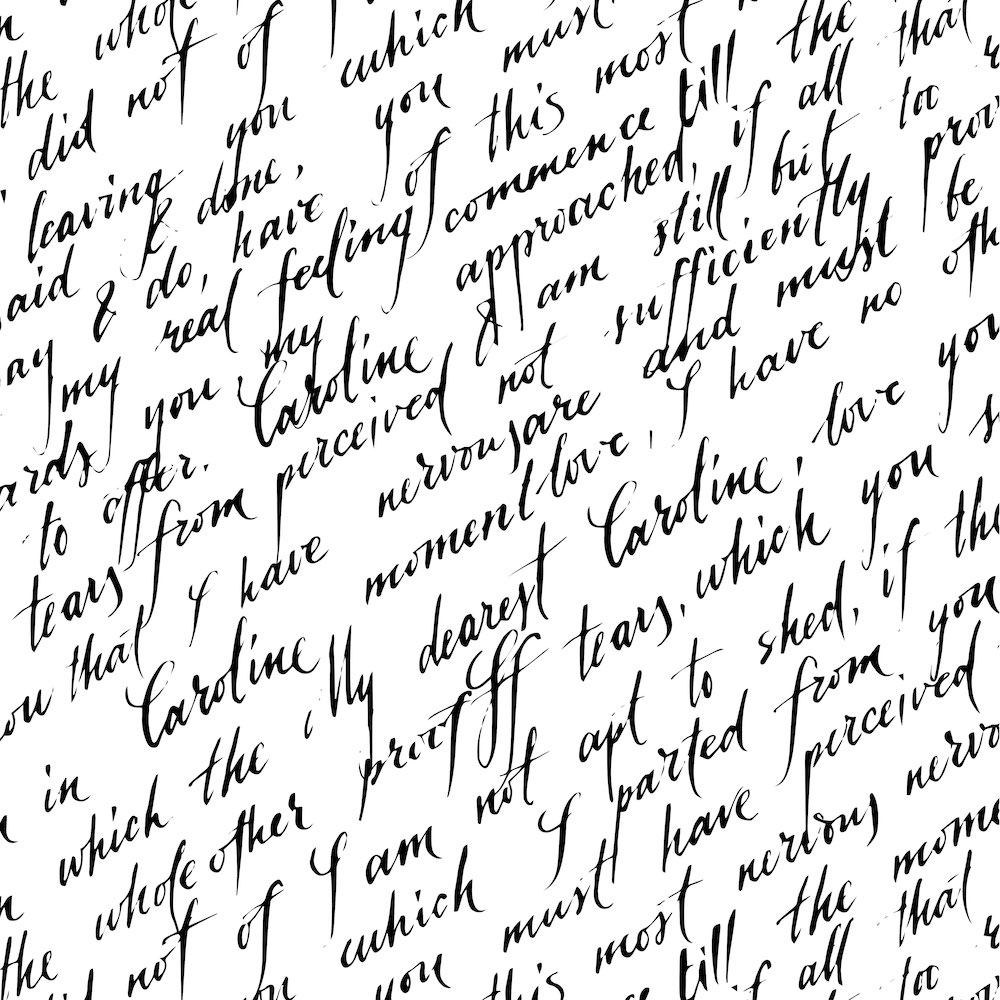 n whole
the not of
did you which
leaving & done, you must
aid & do, have of this most
ay my real feeling commence till the
ards you, my approached, if all that
to offer. Caroline & am still but too
tears from perceived not sufficiently prov
ou that I have nervous are and must be
in Caroline moment love, I have no oth
which the My dearest Caroline, love you
n whole other proof ff tears, which you s
the not of I am not apt to shed, if the
did you which I parted from you
you must have perceived
this most nervous nervo
till the mome
if all that
too